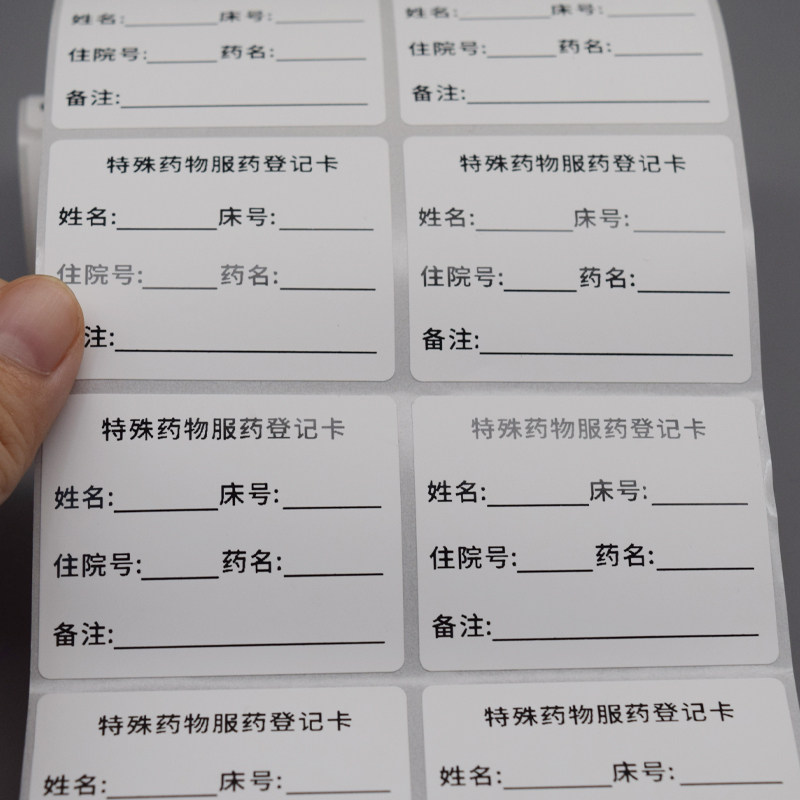 姓名:________床号:________
住院号:______药名:________
备注:____________________
姓名:________床号:________
住院号:______药名:________
备注:____________________
特殊药物服药登记卡
姓名:________床号:________
住院号:______药名:________
注:____________________
特殊药物服药登记卡
姓名:________床号:________
住院号:______药名:________
备注:____________________
特殊药物服药登记卡
姓名:________床号:________
住院号:______药名:________
备注:____________________
特殊药物服药登记卡
姓名:________床号:________
住院号:______药名:________
备注:____________________
特殊药物服药登记卡
姓名:________床号:________
特殊药物服药登记卡
姓名:________床号:________